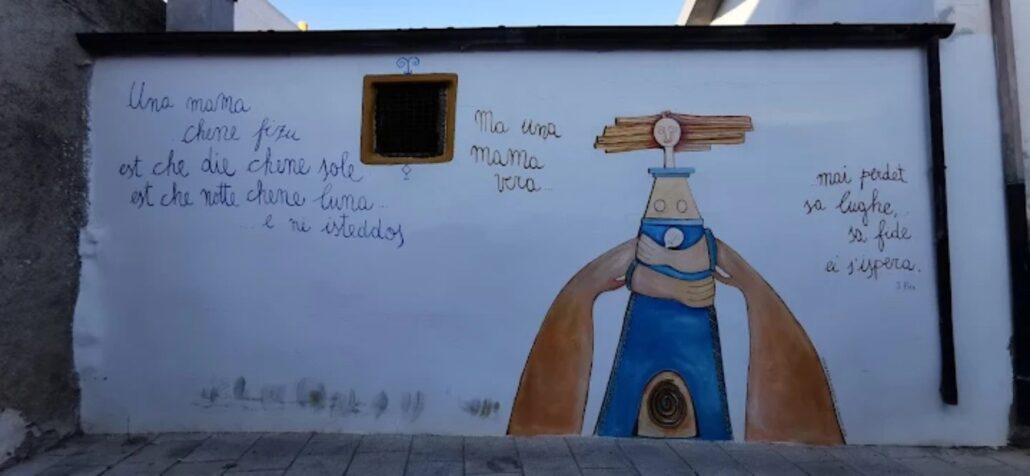 Una mama
chene fizu
est che die chene sole
est che notte chene luna...
... e ni isteddos
Ma una
mama
vera...
...mai perdet
sa lughe,
sa fide
ei s'ispera.